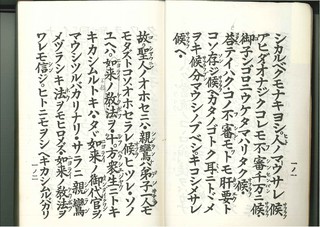 シカルベクモナキヨシヲマウサレ候
アヒダオナジクコレモ不審千万ニ候
御子ニコロニウケタマハリタク候
荅テイハクコノ不審モトモ肝要ト
コソ存ジ候ヘカタノゴトク耳ニトヾメ
ヲキ候分マウシノブベシキコシメサレ
候ヘ
故聖人ノオホセニハ親鸞ハ弟子一人モ
モタズトコソオホセラレ候ヒツレソノ
ユヘハ如来ノ教法ヲ十方衆生ニトキ
キカシムルトキハタヾ如来ノ御代官ヲ
マウシツルバカリナリサラニ親鸞
メヅラシキ法ヲモヒロメズ如来ノ教法ヲ
ワレモ信ジヒトニモヲシヘキカシムルバカリ